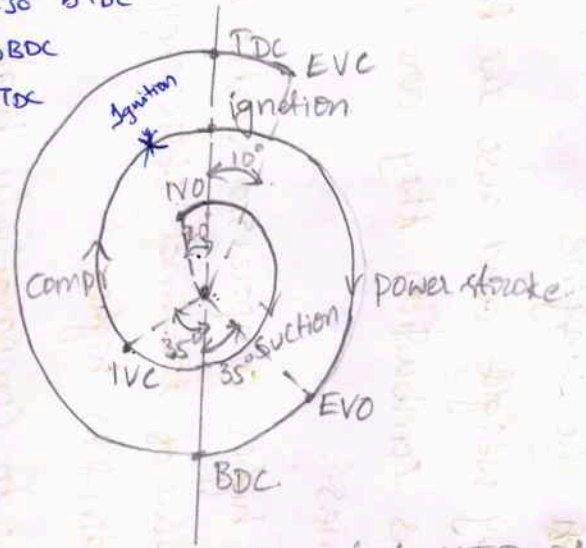 30° BTDC
BDC
TDC
TDC
EVC
Ignition
ignetion
10°
IVO
20
Comp
power stroke
35°
35°
Suction
IVC
EVO
BDC